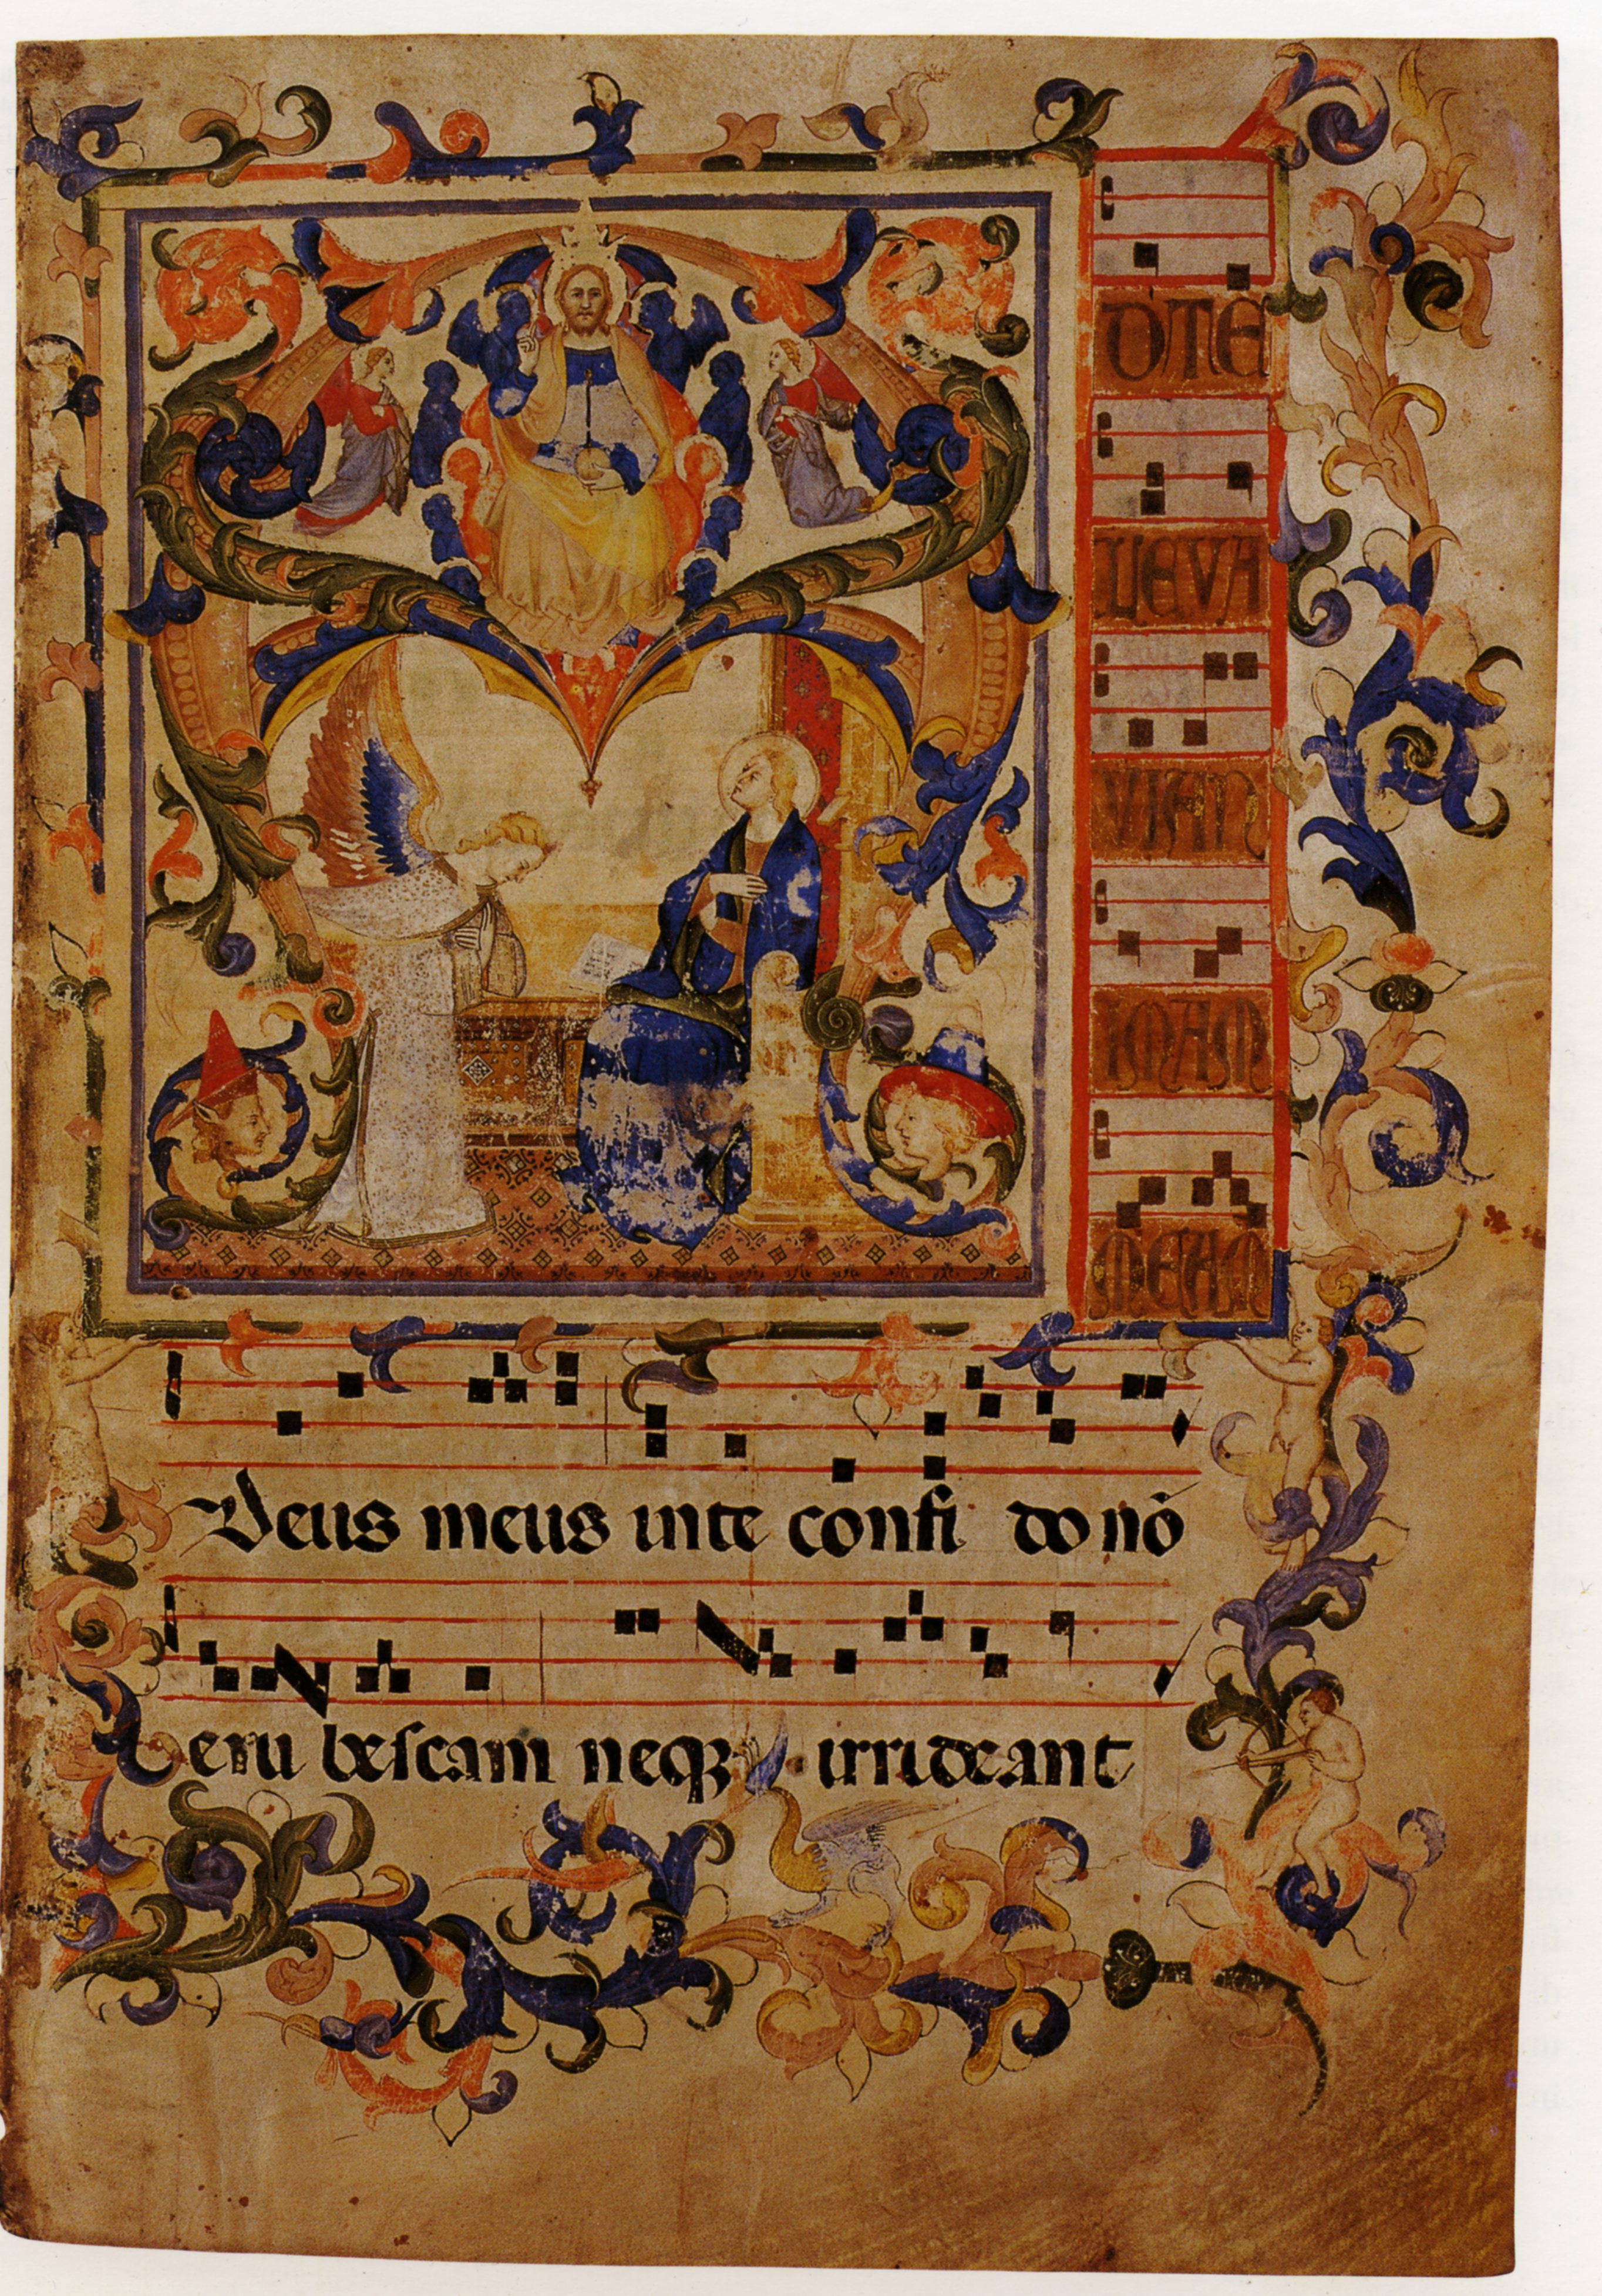 D TE
LEVA
VI AN
IMAM
MEAM
Deus meus inte confi do nõ
eru bescam neqꝫ irrideant